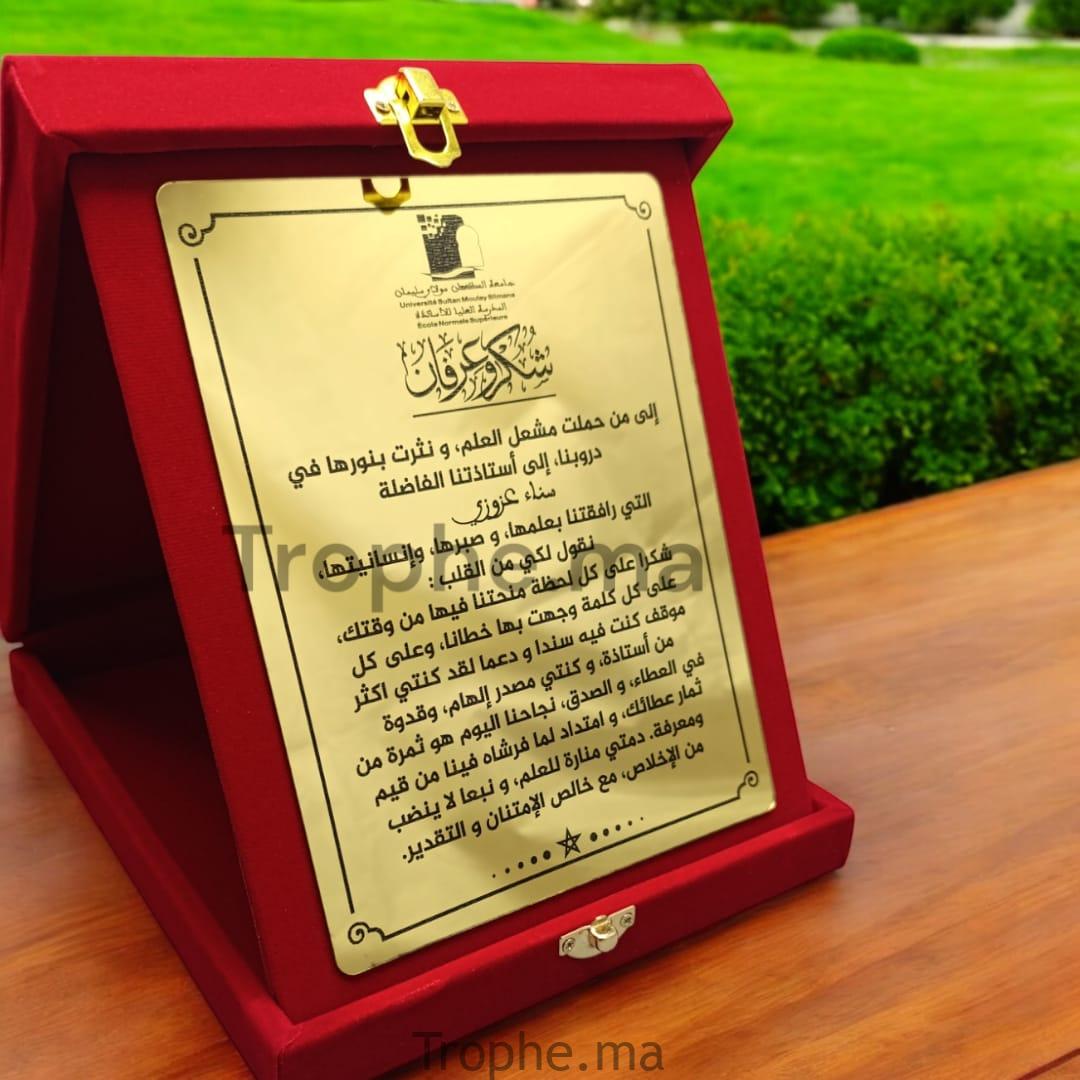 جامعة السلطان مولاي سليمان
Université Sultan Moulay Slimane
المدرسة العليا للأساتذة
Ecole Normale Supérieure
شكر وعرفان
إلى من حملت مشعل العلم، و نثرت بنورها في
دروبنا، إلى أستاذتنا الفاضلة
سناء عزوزي
التي رافقتنا بعلمها، و صبرها، وإنسانيتها،
نقول لكي من القلب :
شكرا على كل لحظة منحتنا فيها من وقتك،
على كل كلمة وجهت بها خطانا، وعلى كل
موقف كنت فيه سندا و دعما لقد كنتي اكثر
من أستاذة، و كنتي مصدر إلهام، وقدوة
في العطاء، و الصدق، نجاحنا اليوم هو ثمرة من
ثمار عطائك، و امتداد لما فرشاه فينا من قيم
ومعرفة. دمتي منارة للعلم، و نبعا لا ينضب
من الإخلاص، مع خالص الإمتنان و التقدير.
Trophe.ma
Trophe.ma